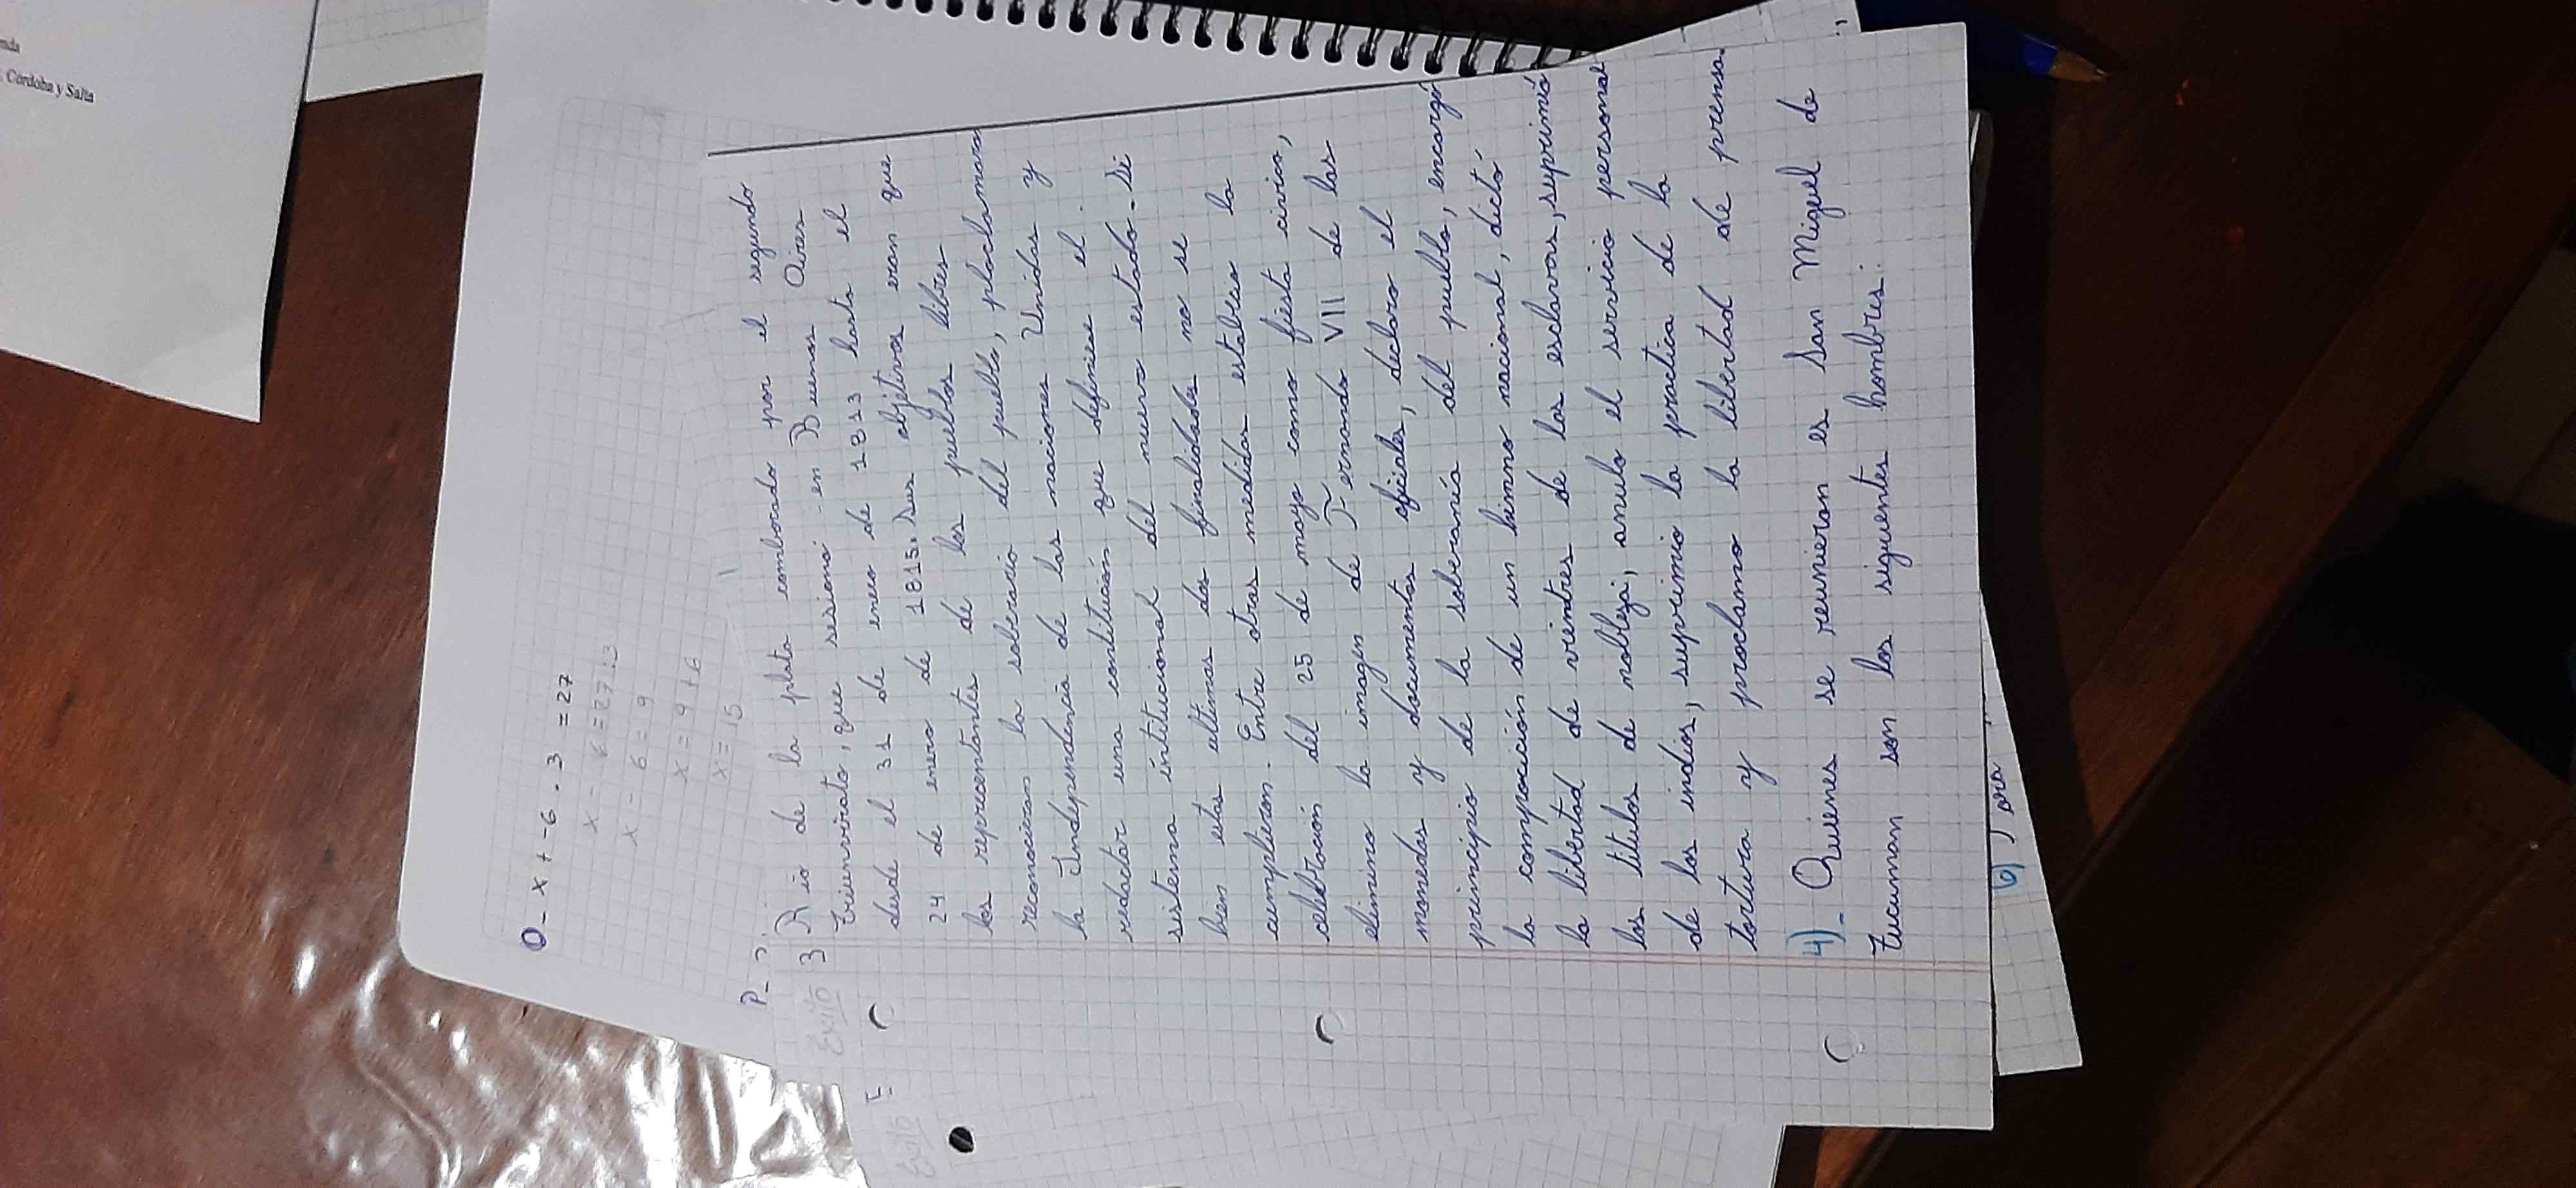 Cordoba y Salta
O- x + -6 . 3 = 27
x - 6 = 27:3
x - 6 = 9
x = 9 + 6
x = 15
P-
Rio de la plata combocado por el segundo
triunvirato, que sesionó en Buenos Aires
desde el 31 de enero de 1813 hasta el
24 de enero de 1815. Sus objetivos eran que
los representantes de los pueblos libres
reconocieran la soberanio del pueblo, proclamara
la Independencia de las naciones Unidas y
redactar una constitución que definiese el
sistema intitucional del nuevo estado. Si
bien estas ultimas dos finalidades no se
cumplieron. Entre otras medidas establecio la
celebración del 25 de mayo como fiesta civica,
elimino la imagen de Fernando VII de las
monedas y documentos oficiales, declaro el
primcipio de la soberanía del pueblo, encargó
la composición de un himno nacional, dictó
la libertad de vientres de los esclavos, suprimió
los titulos de nobleza, anulo el servicio personal
de los indios, suprimio la practica de la
tortura y proclamo la libertad de prensa
4)- Quienes se reunieron es San Miguel de
tucuman son los siguentes hombres:
6)